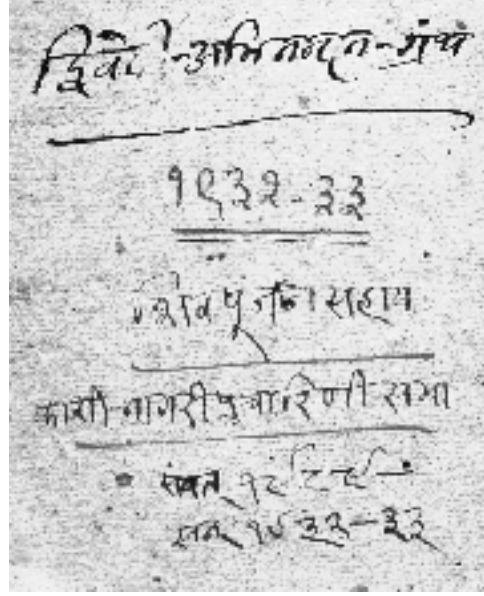 द्विवेदी-अभिनन्दन-ग्रंथ
१९३२-३३
शिवपूजन सहाय
काशी-नागरीप्रचारिणी-सभा
संवत् १९८९-
सन् १९३२-३३